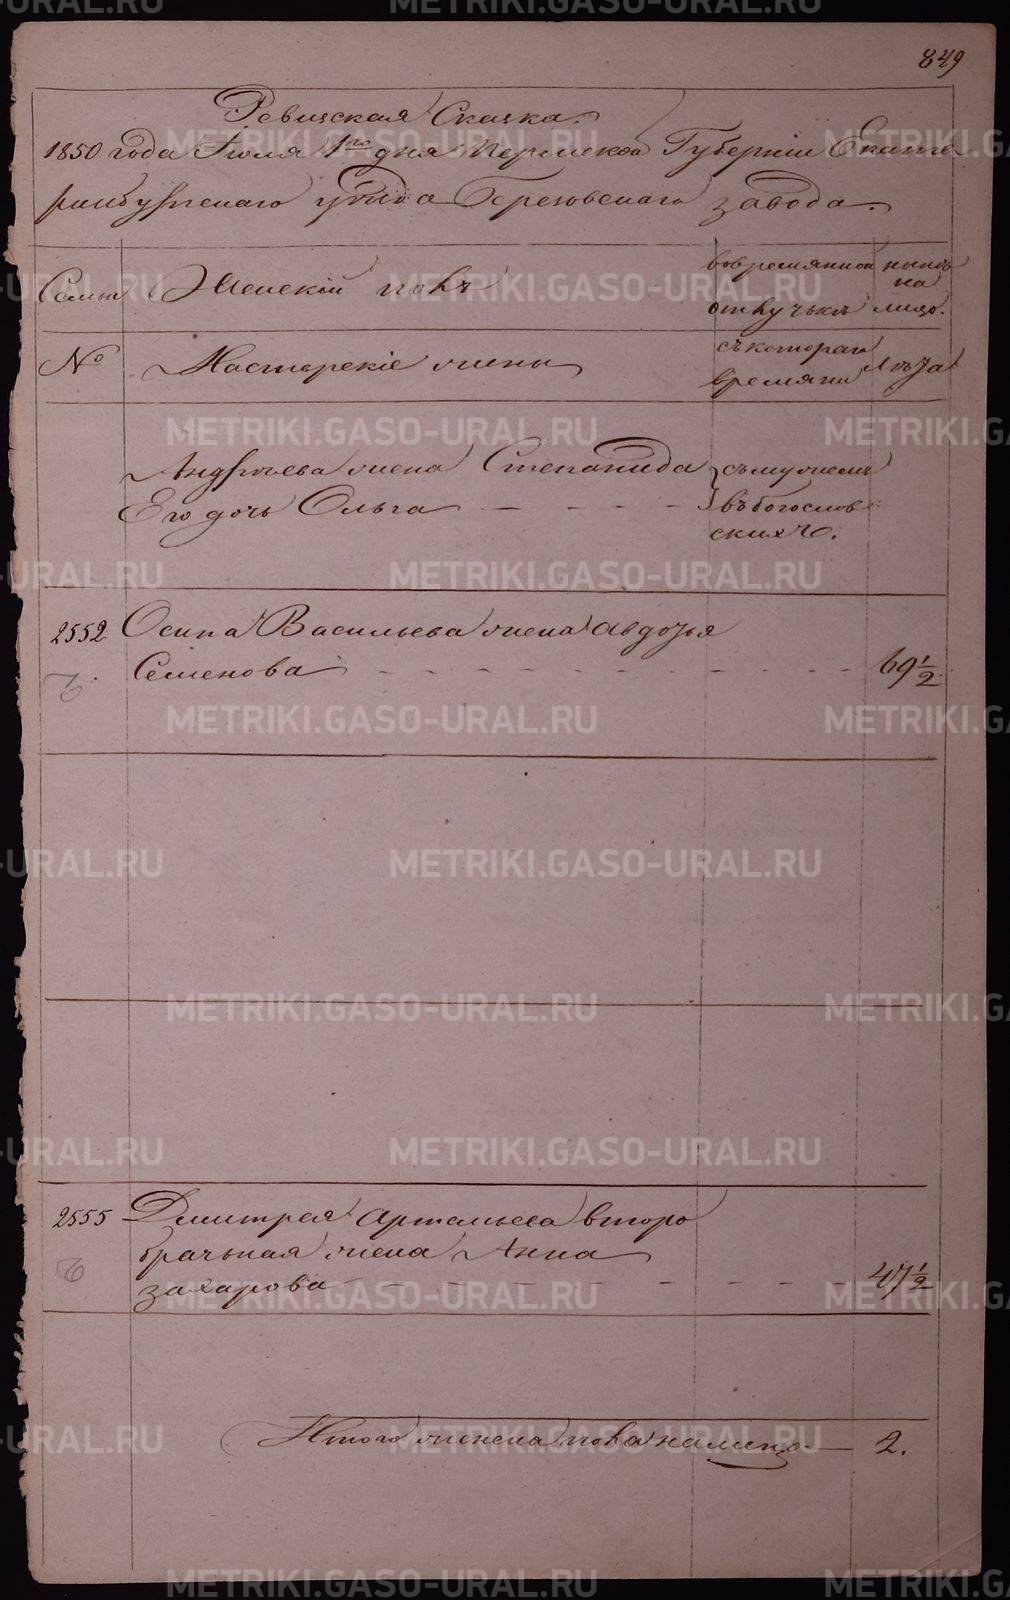 849
Ревизская Сказка.
1850 года Июля 1го дня Пермской Губернии Екате-
ринбургскаго уѣзда Березовскаго завода.
Семьи
Женскій полъ
во временной отлучькѣ
нынѣ на лицо.
№
Мастерскіе жены
съ котораго времяни
лѣта
Андреева жена Степанида
Его дочь Ольга
съ мужемъ
въ богослов
скихъ
2552
Осипа Васильева жена Авдотья
Семенова
69 1/2
2555
Дмитрея Артемьева второ
брачьная жена Анна
Захарова
47 1/2
Итого женска пола на лицо
2.
METRIKI.GASO-URAL.RU